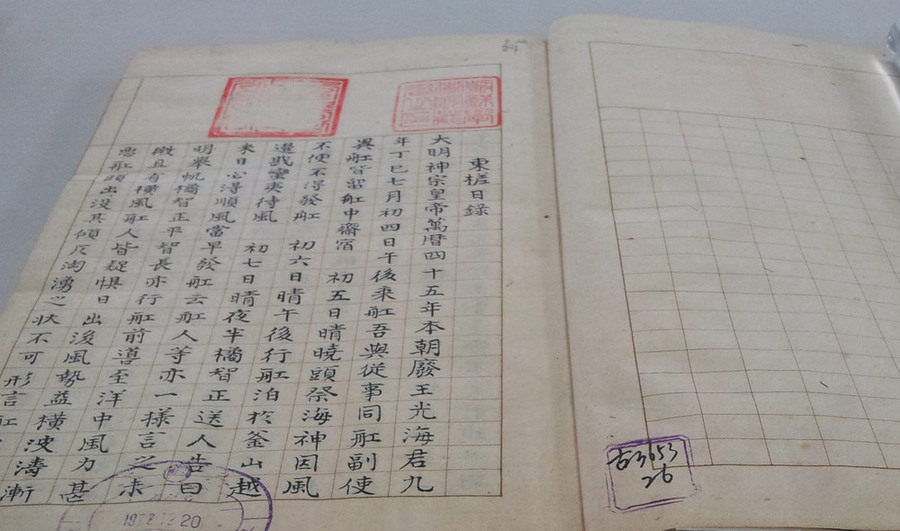 東槎日錄
大明神宗皇帝萬曆四十五年本朝廢王光海君九
年丁巳七月初四日午後乘舡吾與從事同舡副使
異舡皆留舡中齋宿 初五日晴曉頭祭海神因風
不便不得發舡 初六日晴午後行舡泊於釜山越
邊戡蠻夷待風 初七日晴夜半橘智正送人告曰
來日必得順風當早發舡云舡人等亦一樣言之未
明擧帆橘智正平智長亦行舡前導至洋中風力甚
微且有橫風舡人皆疑懼日出後風勢益橫波濤漸
惡舡頭出沒其傾仄洶湧之狀不可形言舡
古3653
26